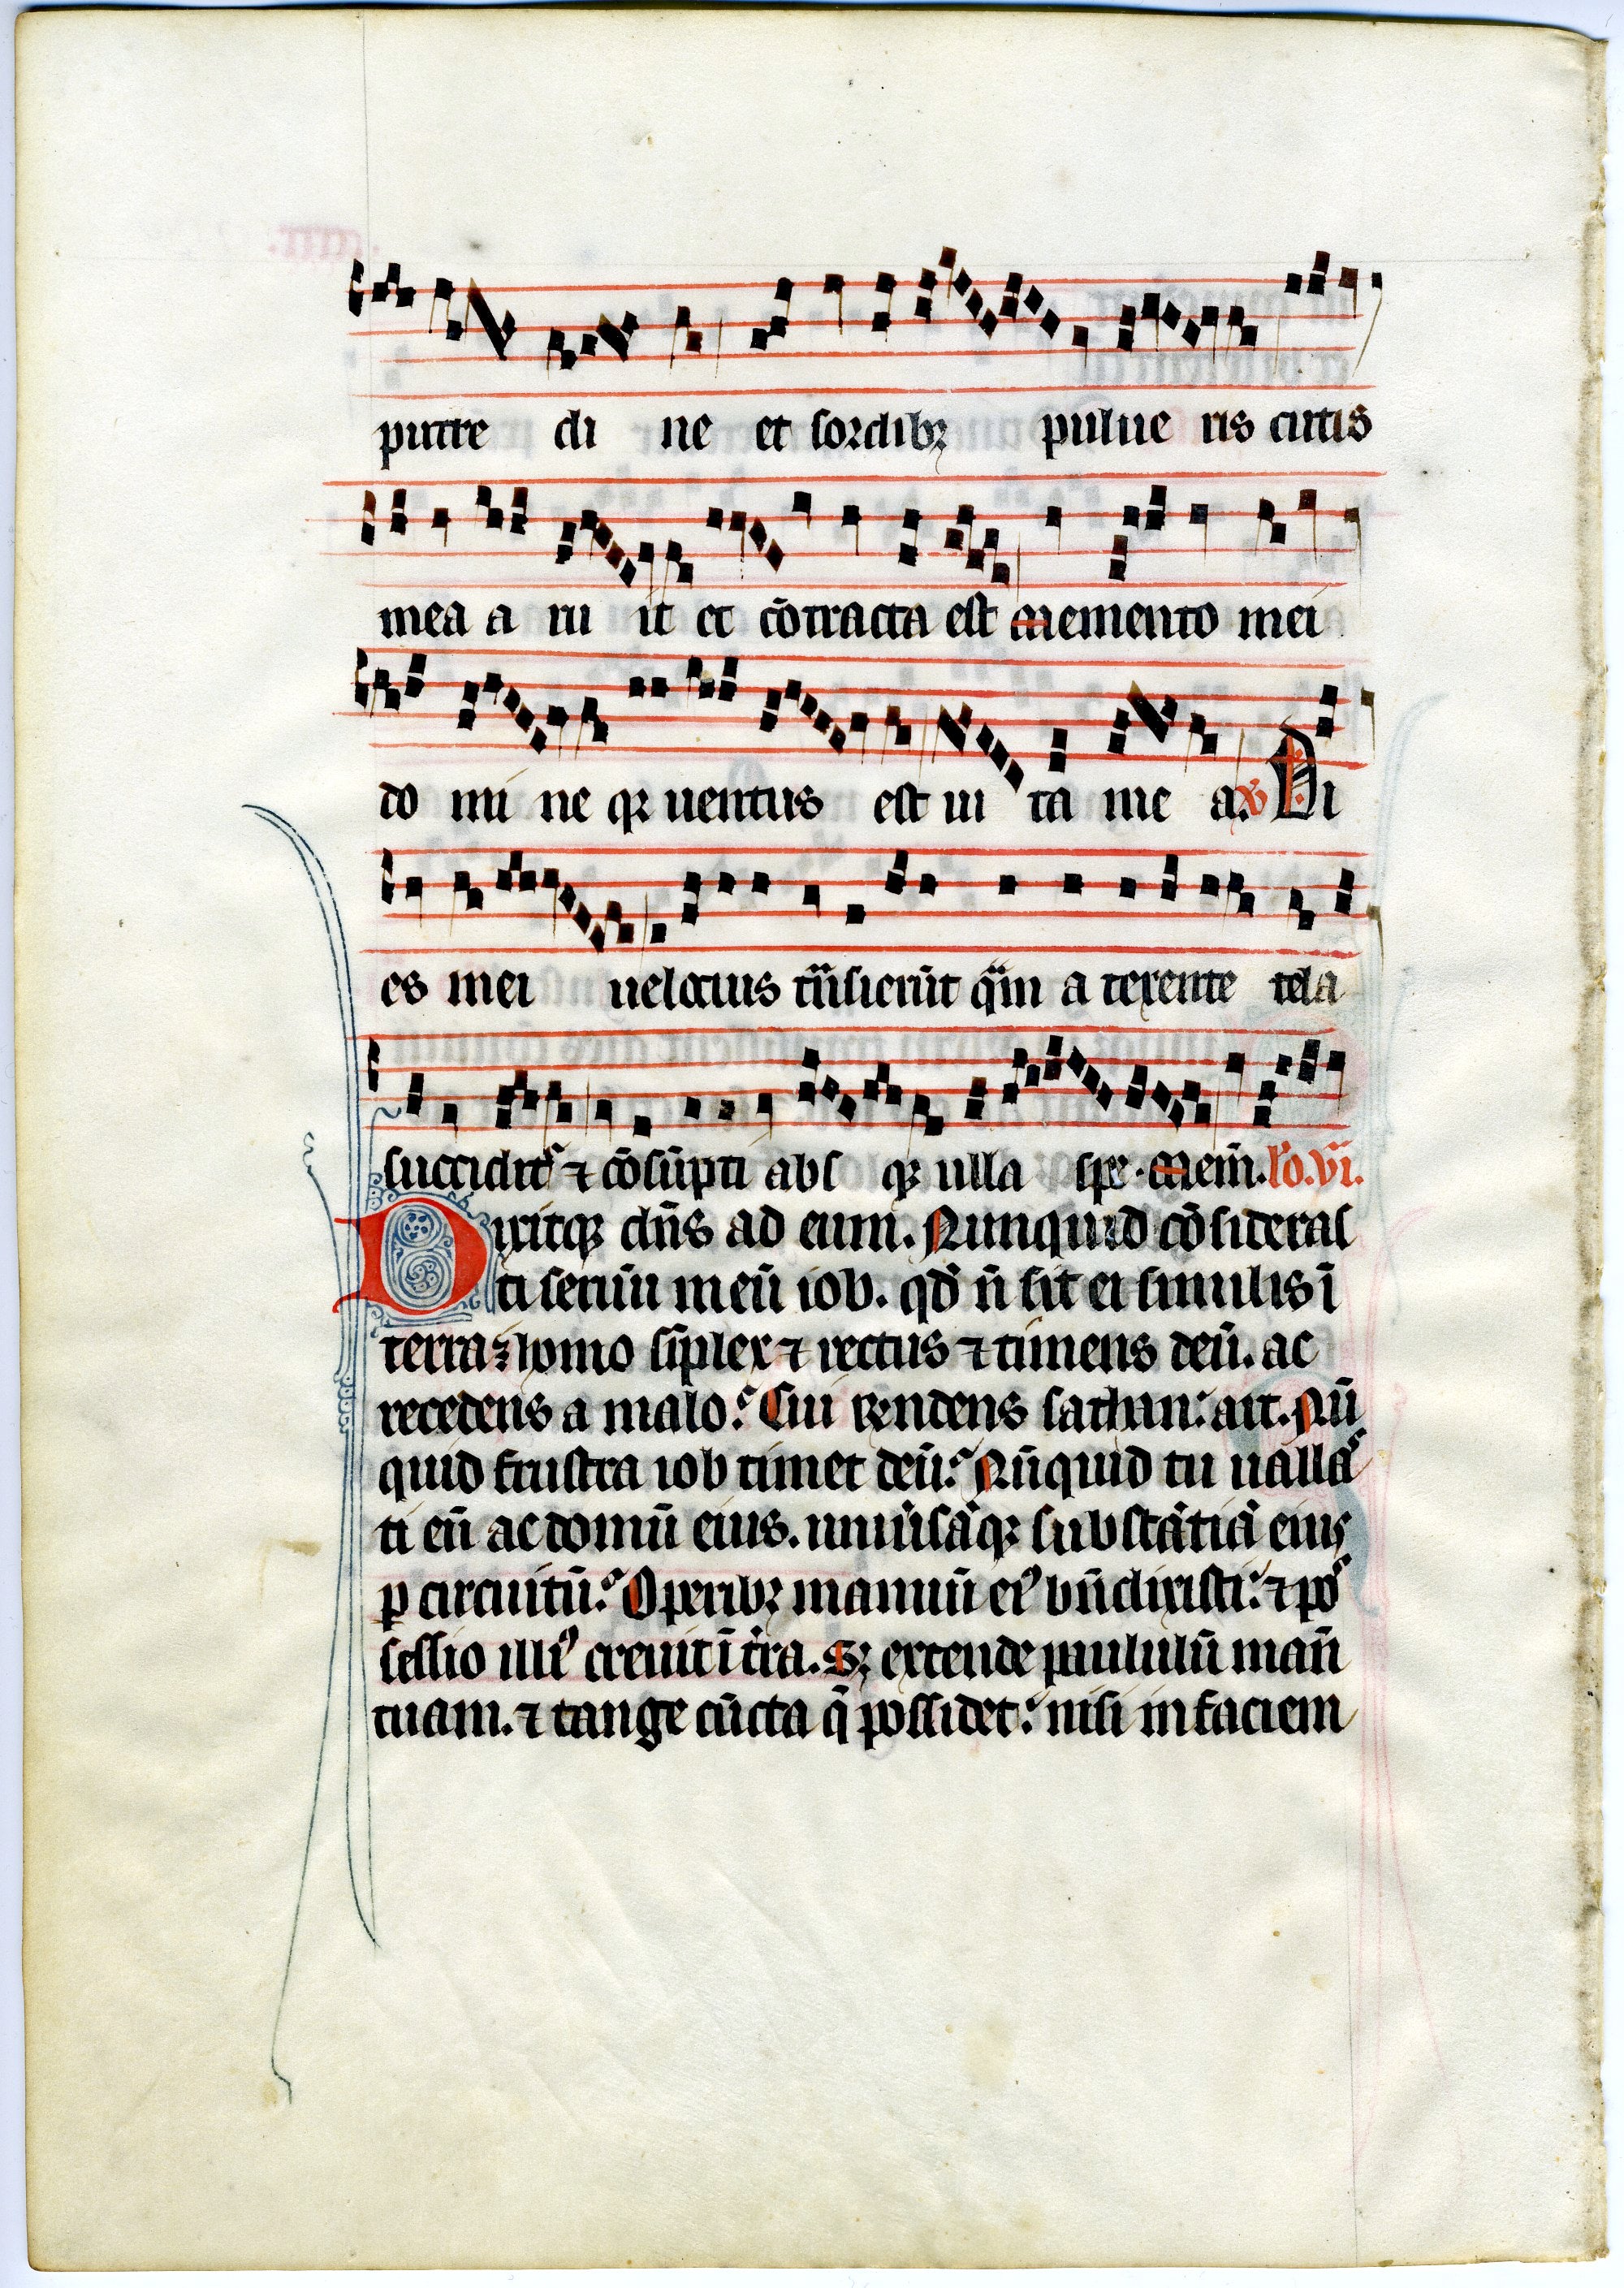 putre di ne et sordibꝫ pulue ris cutis
mea a ru it et cōtracta est Memento mei
do mi ne qꝛ uentus est ui ta me a. ℣ Di
es mei uelocius trāsierūt quā a texente tela
succidit᷑ ⁊ cōsūpti abs qꝫ ulla spe. Mem̄. lc̄o. vi.
Dixitqꝫ dn̄s ad eum. Nunquid cōsideras
ti seruū meū iob. qd̓ n̄ sit ei similis ī
terra: homo sīplex ⁊ rectus ⁊ timens deū. ac
recedens a malo: Cui rn̄dens sathan: ait. Nū
quid frustra iob timet deū: Nūquid tu ualla
ti eū ac domū eius. uniu̓sāqꝫ substātiā eius
ꝑ circuitū: Operibꝫ manuū eiꝰ bn̄dixisti: ⁊ pos
sessio illiꝰ creuit ī t̓ra. Sꝫ extende paululū manū
tuam. ⁊ tange cūcta q̄ possidet: nisi in faciem